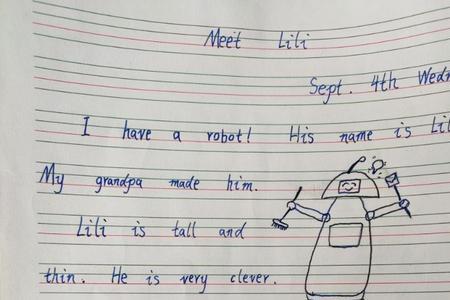 Meet Lili
Sept. 4th Wed
I have a robot! His name is Lil
My grandpa made him.
Lili is tall and
thin. He is very clever.